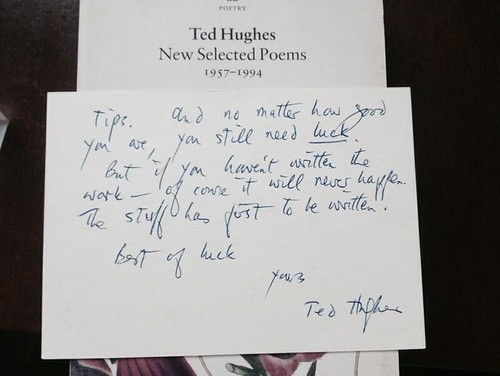 POETRY
Ted Hughes
New Selected Poems
1957–1994
Tips. And no matter how good
you are, you still need luck.
But if you haven't written the
work — of course it will never happen.
The stuff has just to be written.
Best of luck
Yours
Ted Hughes